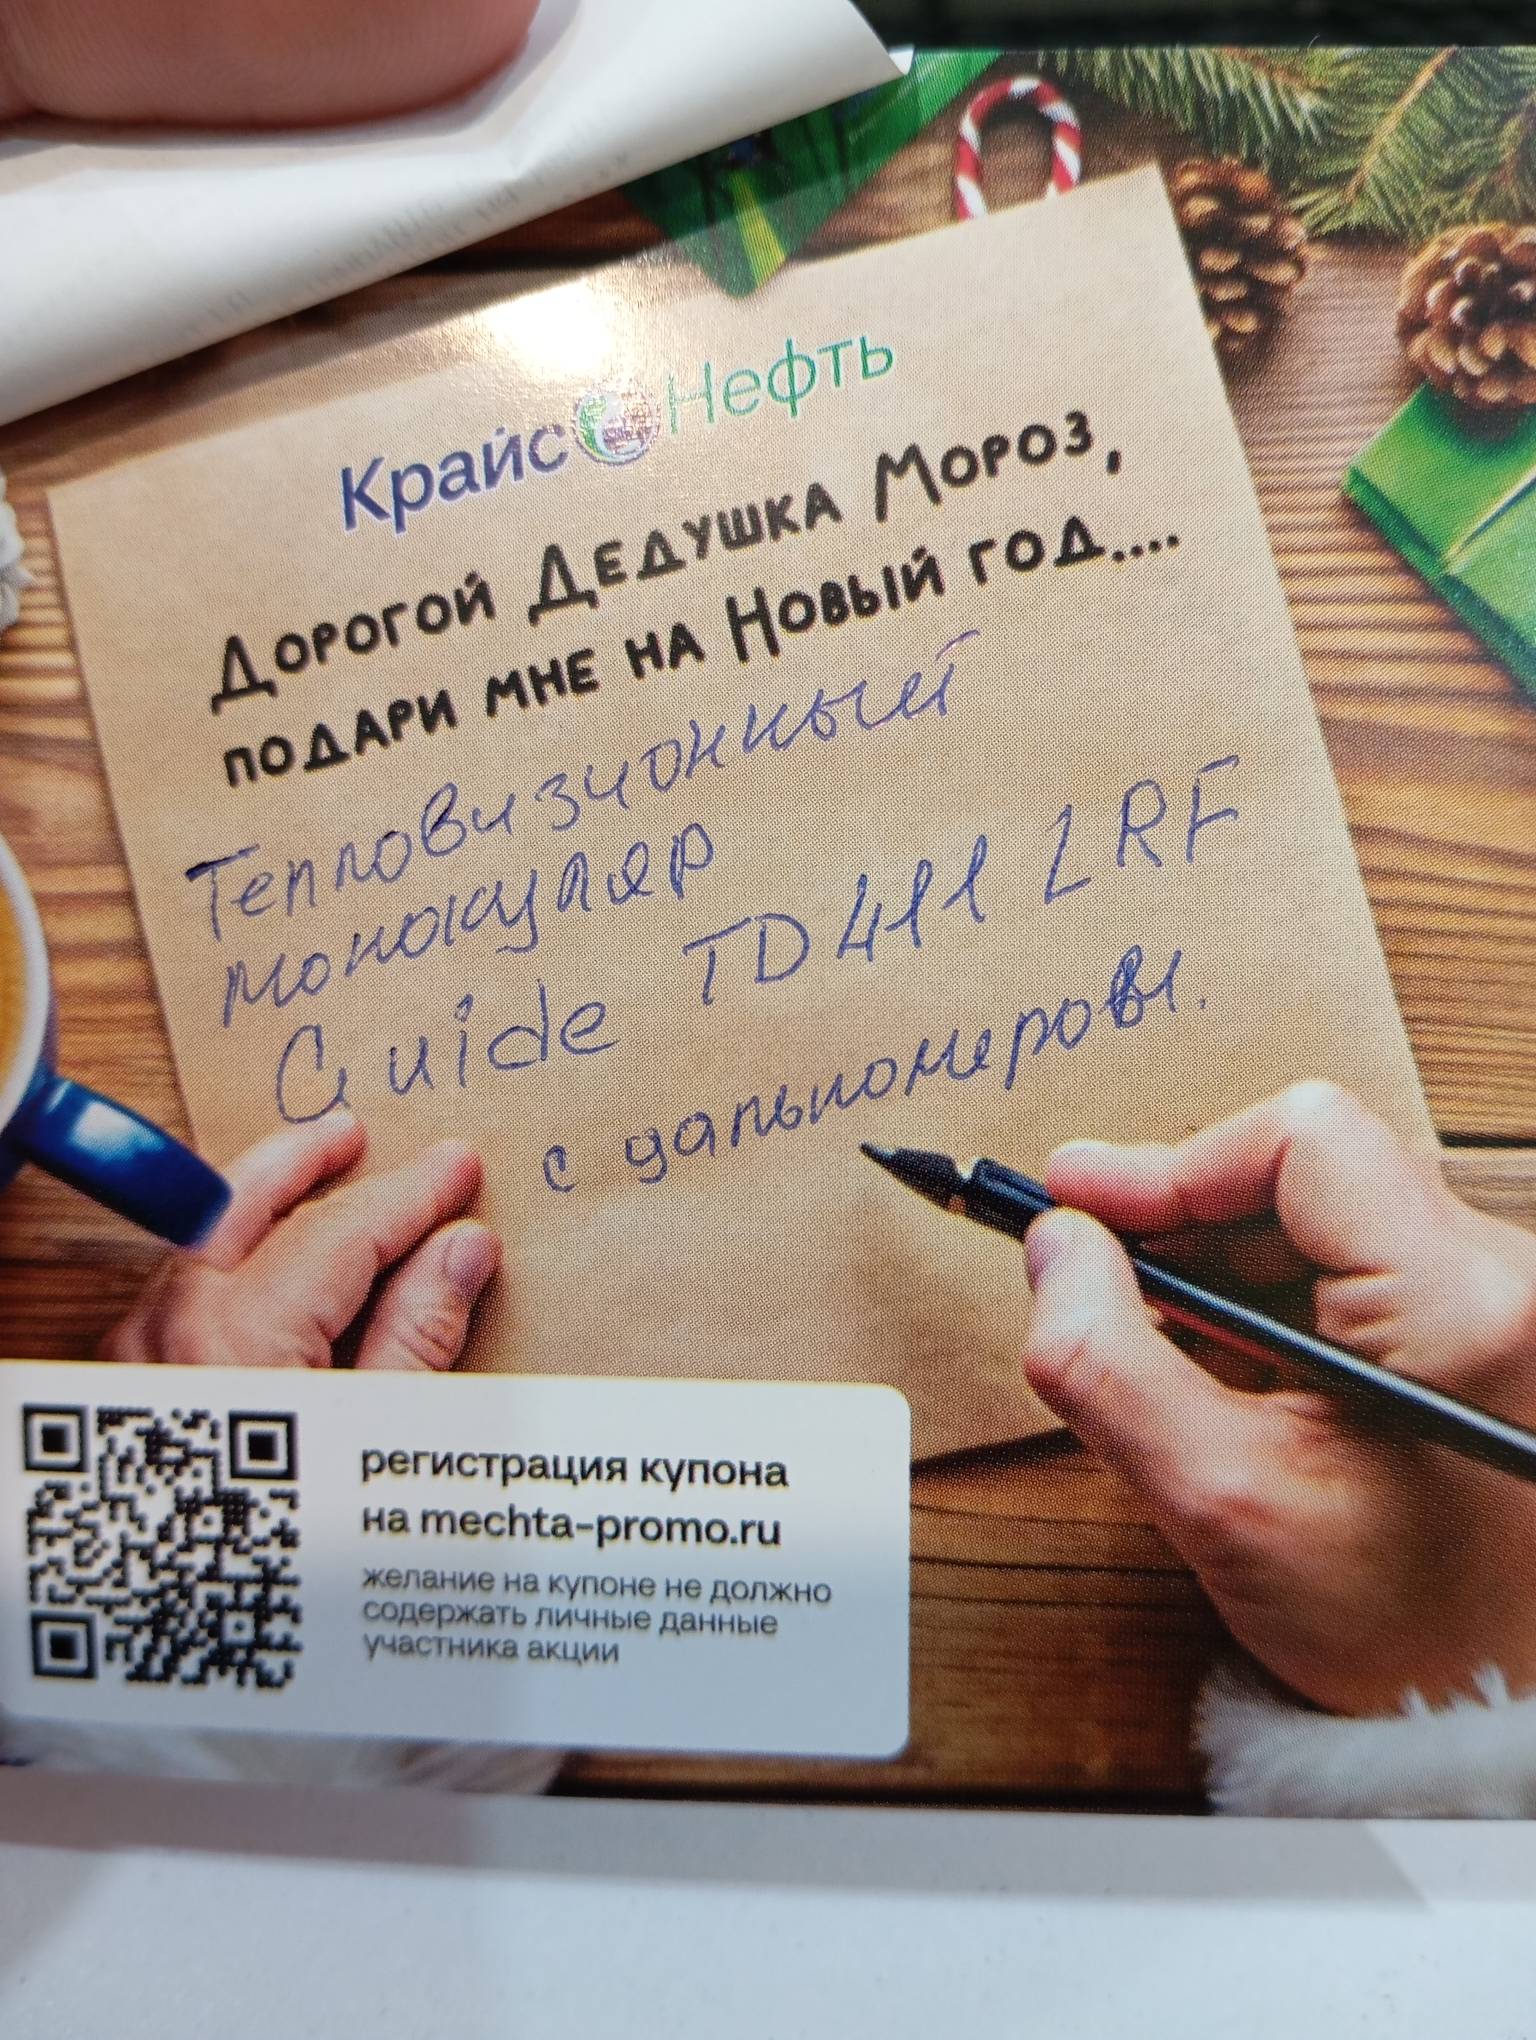 Крайс Нефть
Дорогой Дедушка Мороз,
подари мне на Новый год....
Тепловизионный
монокуляр
Guide TD411 LRF
с дальномеровы.
регистрация купона
на mechta-promo.ru
желание на купоне не должно
содержать личные данные
участника акции